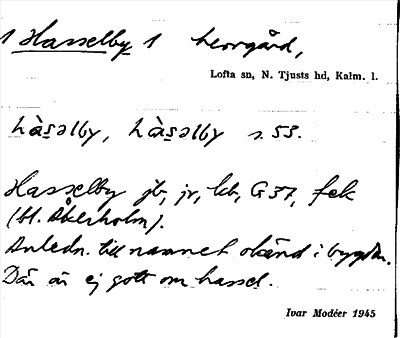 1 Hasselby 1 herrgård,
Lofta sn, N. Tjusts hd, Kalm. l.
hàs̱əlby, hàs̱əlby s. 53.
Hasselby jb, jr, lcb, G 37, fek
(bl. Åkerholm).
Anledn. till namnet okänd i bygden.
Där är ej gott om hassel.
Ivar Modéer 1945